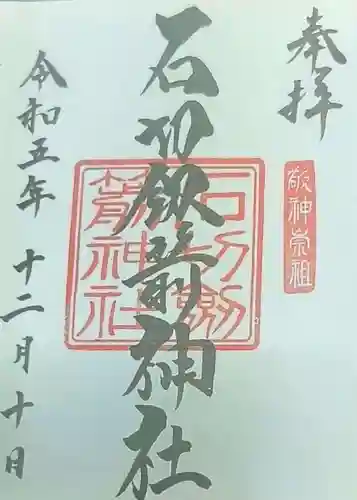 奉拝
敬神崇祖
石切劔箭神社
石切劔
箭神社
令和五年
十二月十日